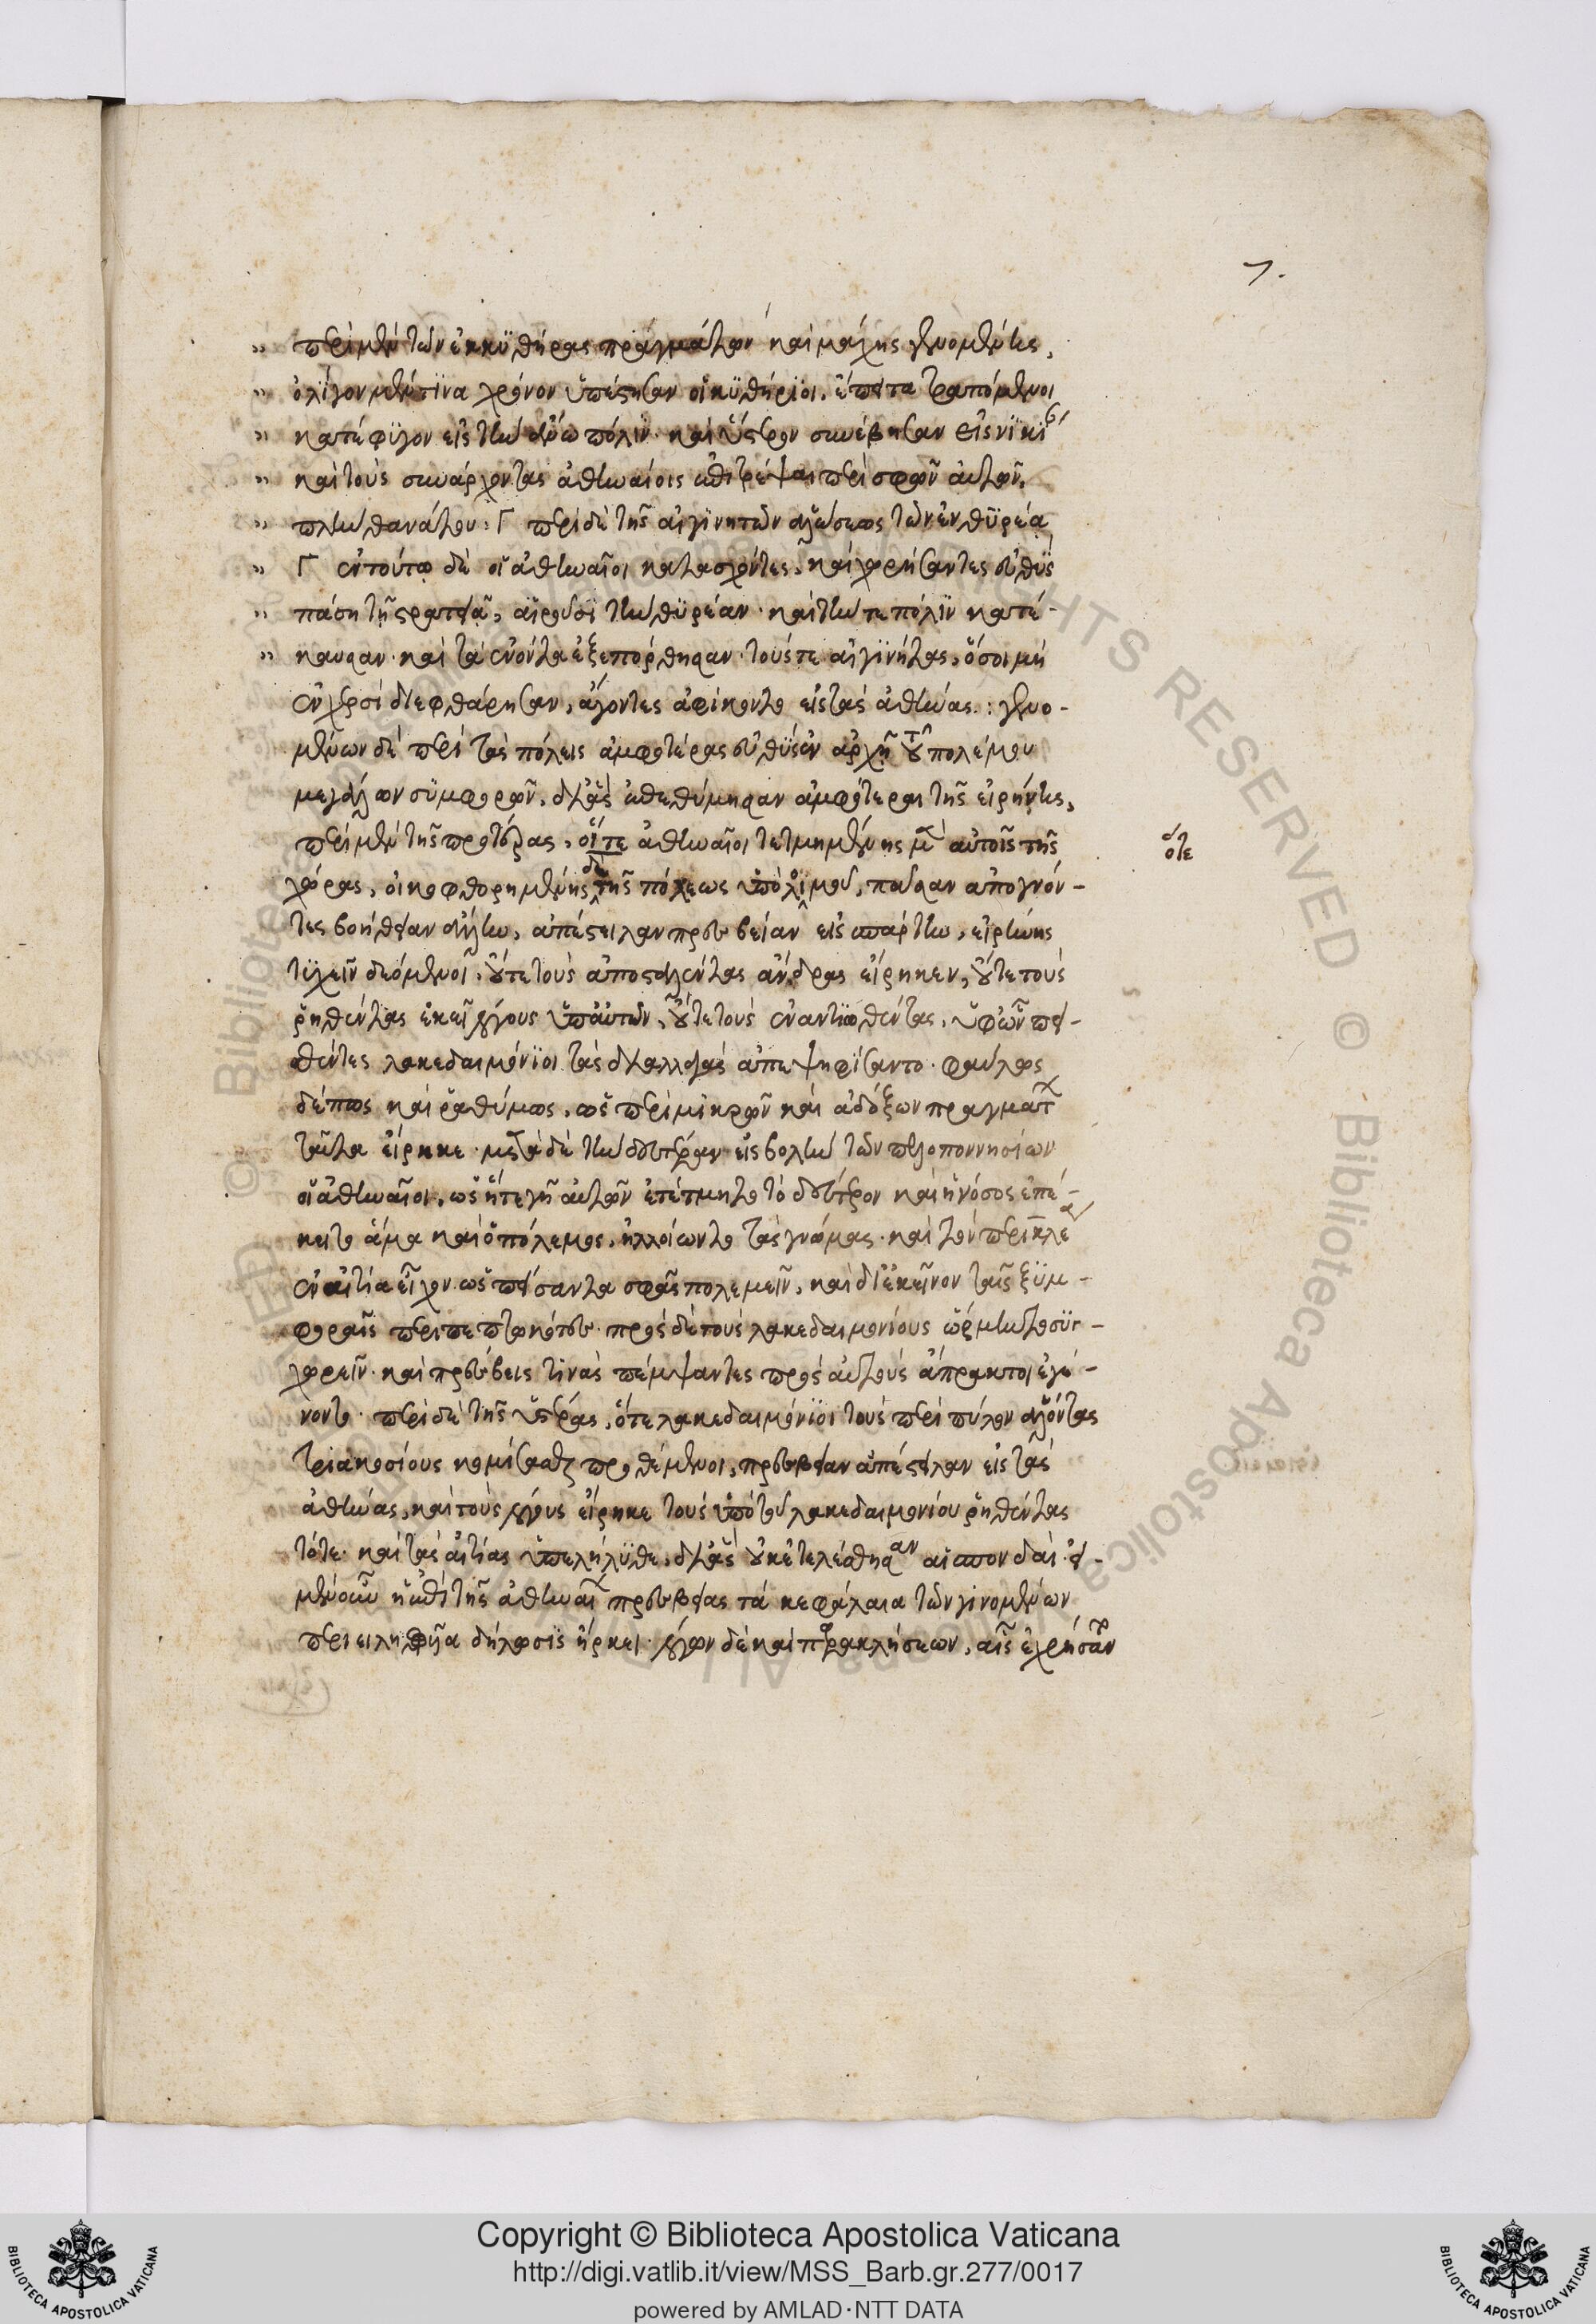 7.
„ περὶ μὲν τῶν ἐκ κυθήρας πραγμάτων καὶ μάχης γενομένης,
„ ὀλίγον μέν τινα χρόνον ὑπέστησαν οἱ κυθήριοι. ἔπειτα τραπόμενοι
„ κατέφυγον εἰς τὴν ἄνω πόλιν· καὶ ὕστερον συνέβησαν
„ καὶ τοὺς συνάρχοντας ἀθηναίοις ἐπιτρέψαι περὶ σφῶν αὐτῶν,
„ πλὴν θανάτου: Γ περὶ δὲ τῆς αἰγινητῶν ἁλώσεως τῶν ἐν θυρέᾳ
„ Γ ἐν τούτῳ δὲ οἱ ἀθηναῖοι κατασχόντες, καὶ χωρήσαντες εὐθὺς
„ πάσῃ τῇ στρατειᾷ, αἱροῦσι τὴν θυρέαν· καὶ τήν τε πόλιν κατέ-
„ καυσαν· καὶ τὰ ἐνόντα ἐξεπόρθησαν· τούς τε αἰγινήτας, ὅσοι μὴ
ἐν χερσὶ διεφθάρησαν, ἄγοντες ἀφίκοντο εἰς τὰς ἀθήνας.: γενο-
μένων δὲ περὶ τὰς πόλεις ἀμφοτέρας εὐθὺς ἐν ἀρχῇ τοῦ πολέμου
μεγάλων συμφορῶν, δι' ἃς ἐπεθύμησαν ἀμφότεραι τῆς εἰρήνης,
περὶ μὲν τῆς προτέρας, οἵτε ἀθηναῖοι τετμημένης μὲν αὐτοῖς τῆς
ὅτε
χώρας, οἰκοφθορημένης δὲ τῆς πόλεως ὑπὸ λοιμοῦ, πᾶσαν ἀπογνόν-
τες βοήθειαν ἄλλην, ἀπέστειλαν πρεσβείαν εἰς σπάρτην, εἰρήνης
τυχεῖν δεόμενοι, οὔτε τοὺς ἀποσταλέντας ἄνδρας εἴρηκεν, οὔτε τοὺς
ῥηθέντας ἐκεῖ λόγους ὑπ' αὐτῶν, οὔτε τοὺς ἐναντιωθέντας, ὑφ' ὧν πει-
θέντες λακεδαιμόνιοι τὰς διαλλαγὰς ἀπεψηφίσαντο· φαύλως
δέ πως καὶ ῥαθύμως, ὡς περὶ μικρῶν καὶ ἀδόξων πραγμάτων
ταῦτα εἴρηκε· μετὰ δὲ τὴν δευτέραν εἰσβολὴν τῶν πελοποννησίων
οἱ ἀθηναῖοι, ὡς ἥτε γῆ αὐτῶν ἐτέτμητο τὸ δεύτερον καὶ ἡ νόσος ἐπέ-
κειτο ἅμα καὶ ὁ πόλεμος, ἠλλοίωντο τὰς γνώμας· καὶ τὸν περικλέα
ἐν αἰτίᾳ εἶχον ὡς πείσαντα σφᾶς πολεμεῖν, καὶ δι' ἐκεῖνον ταῖς ξυμ-
φοραῖς περιπεπτωκότες· πρὸς δὲ τοὺς λακεδαιμονίους ὥρμηντο συγ-
χωρεῖν· καὶ πρέσβεις τινὰς πέμψαντες πρὸς αὐτοὺς ἄπρακτοι ἐγέ-
νοντο· περὶ δὲ τῆς ὑστέρας, ὅτε λακεδαιμόνιοι τοὺς περὶ πύλον ἁλόντας
τριακοσίους κομίσασθαι προθέμενοι, πρεσβείαν ἀπέστειλαν εἰς τὰς
ἀθήνας, καὶ τοὺς λόγους εἴρηκε τοὺς ὑπὸ τοῦ λακεδαιμονίου ῥηθέντας
τότε· καὶ τὰς αἰτίας ὑπελήλυθε, δι' ἃς οὐκ ἐτελέσθησαν αἱ σπονδαί· εἰ
μὲν οὖν ἡ ἐπὶ τῆς ἀθηναίων πρεσβείας τὰ κεφάλαια τῶν γινομένων
περιειληφυῖα δήλωσις ἤρκει· λόγων δὲ καὶ παρακλήσεων, αἷς ἐχρήσαντο